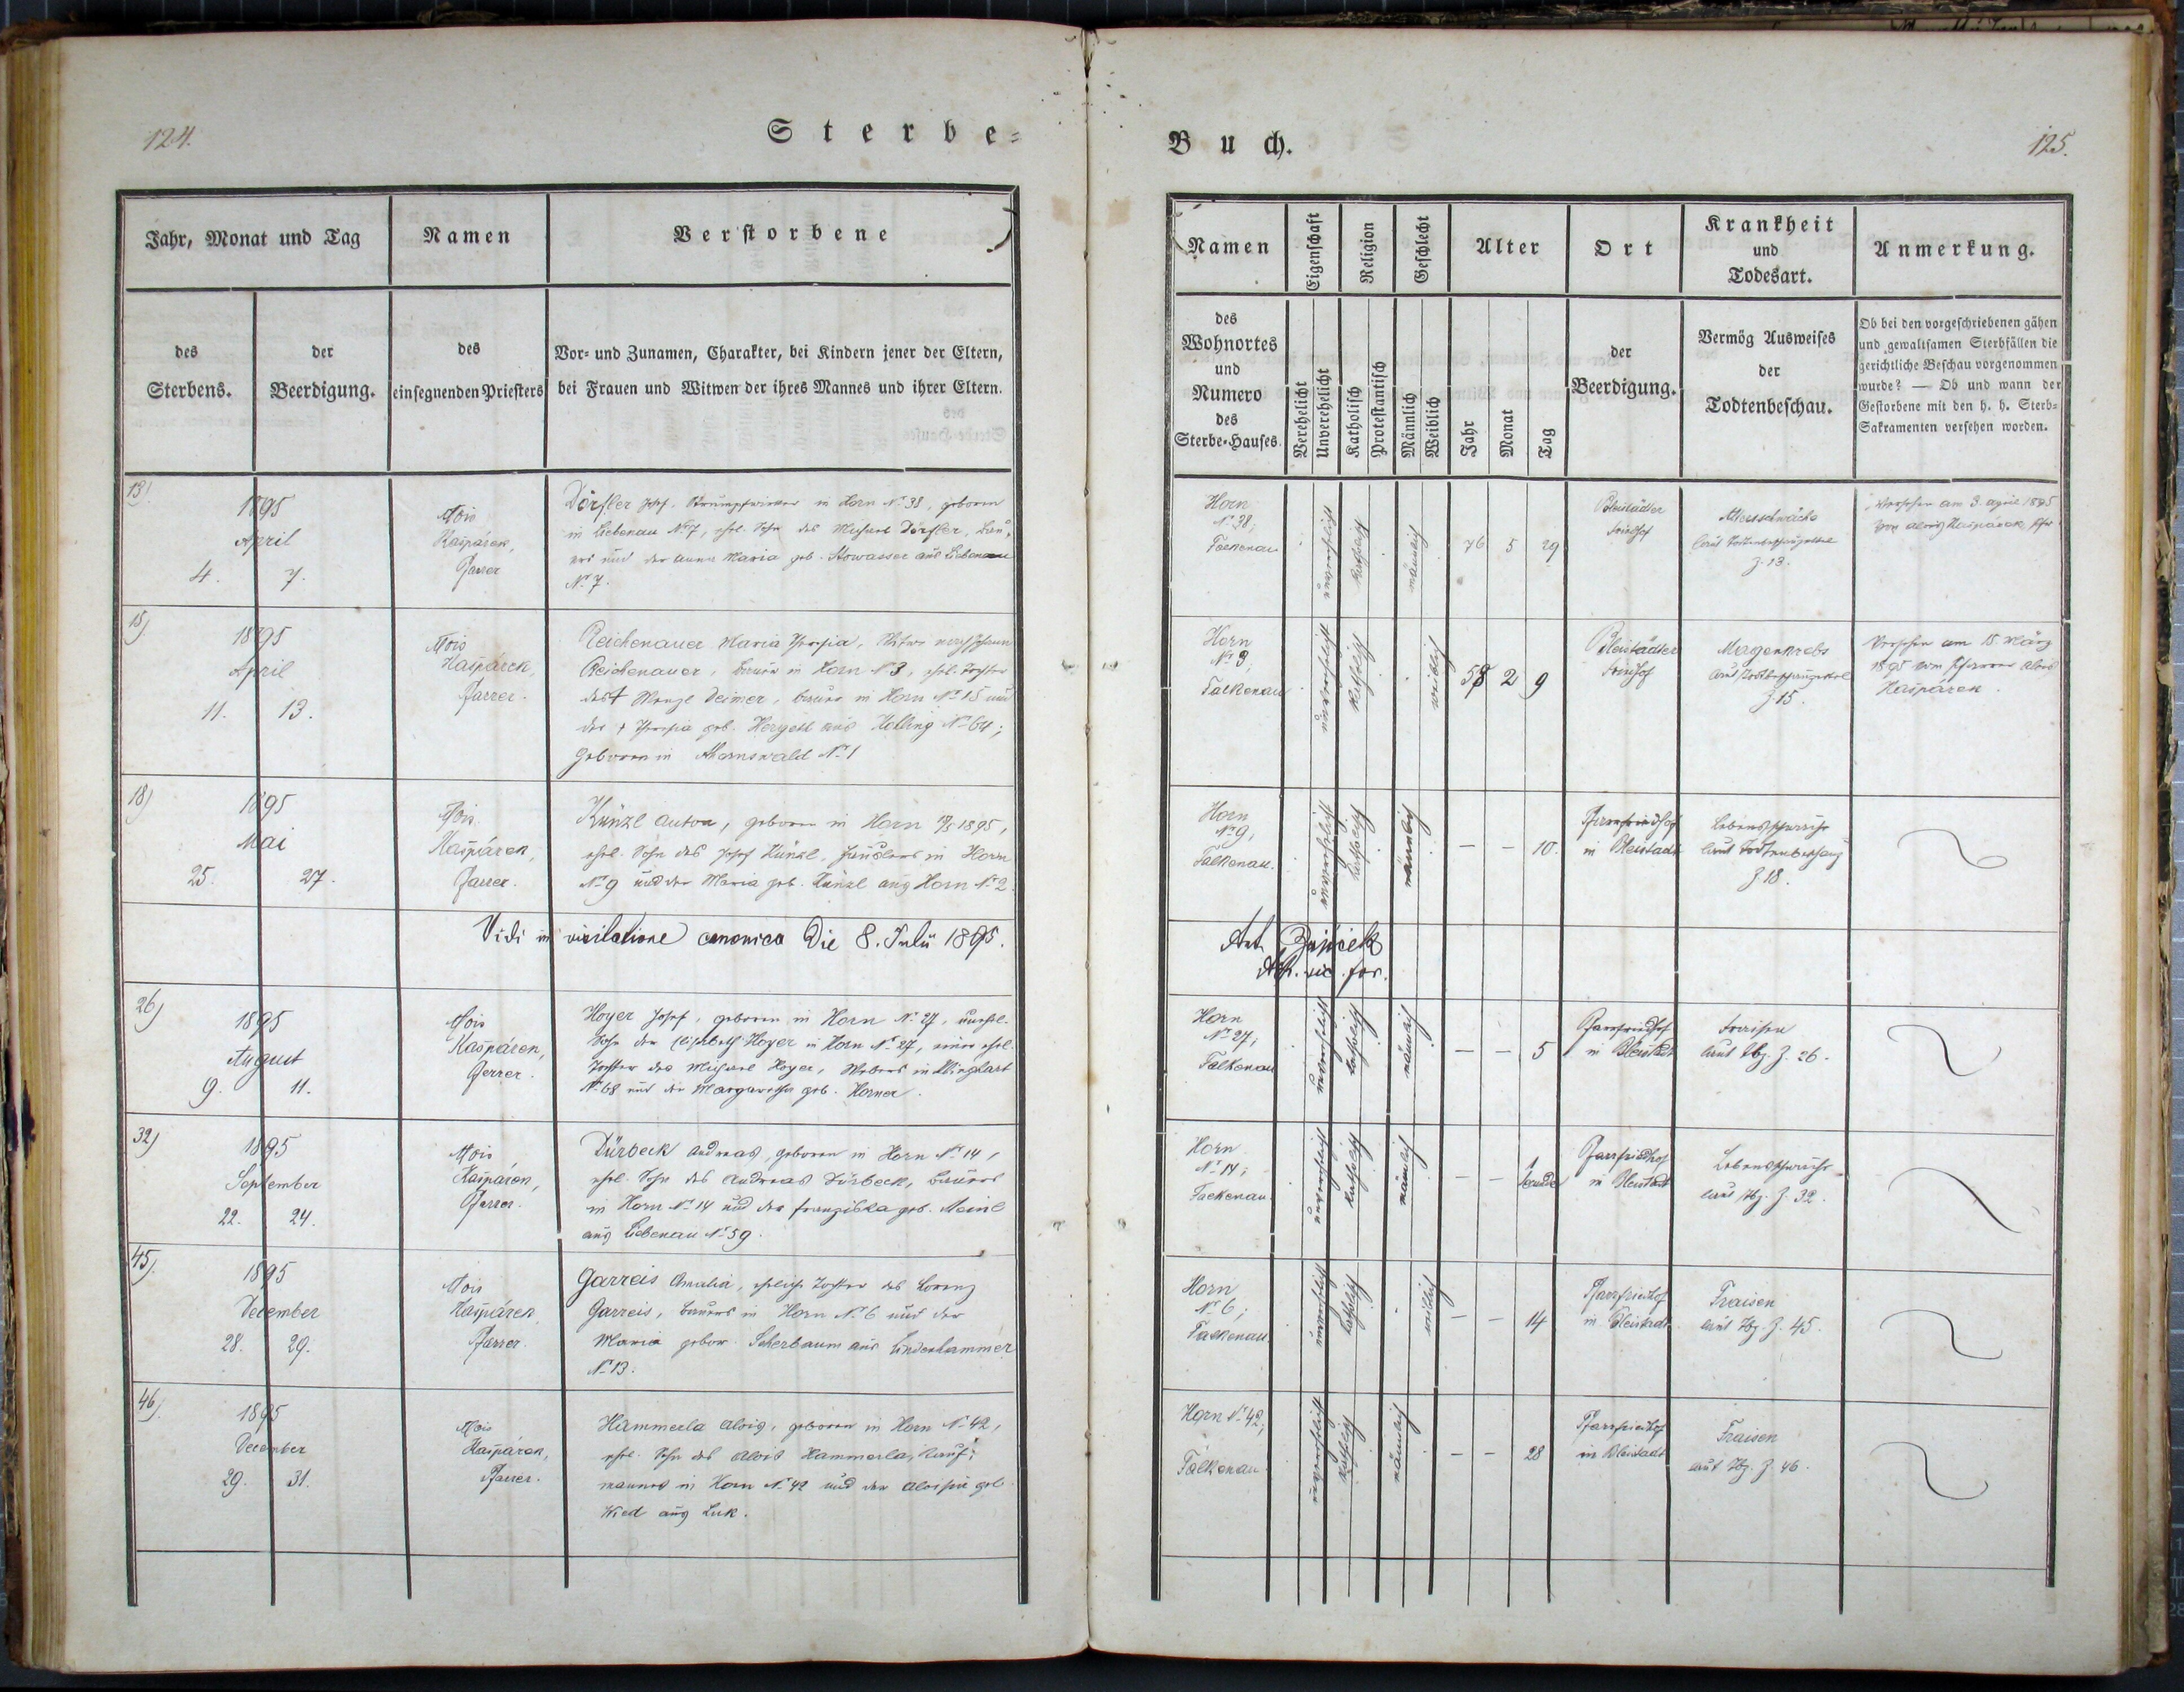 124.
Sterbe-
Jahr, Monat und Tag
Namen
Verstorbene
des
Sterbens.
der
Beerdigung.
des
einsegnenden Priesters
Vor- und Zunamen, Charakter, bei Kindern jener der Eltern,
bei Frauen und Witwen der ihres Mannes und ihrer Eltern.
13)
1895
April
4. 7.
Alois
Kašpárek,
Pfarrer
Dörfler Josef, Strumpfwirker in Horn No 38, geboren
in Liebenau No 7, ehel. Sohn des Michael Dörfler, Bau-
ers und der Anna Maria geb. Stowasser aus Liebenau
No 7.
15)
1895
April
11. 13.
Alois
Kašpárek,
Pfarrer.
Reichenauer Maria Theresia, Witwe nach Johann
Reichenauer, Bauer in Horn No 3, ehel. Tochter
des † Wenzl Deimer, Bauers in Horn No 15 und
der † Theresia geb. Hergetl aus Kolling No 64;
geboren in No 1
18)
1895
Mai
25. 27.
Alois
Kašpárek,
Pfarrer.
Künzl Anton, geboren in Horn 1895,
ehel. Sohn des Josef Künzl, Häuslers in Horn
No 9 und der Maria geb. Künzl aus Horn No 2.
Vidi in visitatione canonica Die 8. Julii 1895.
26)
1895
August
9. 11.
Alois
Kašpárek,
Pfarrer.
Hoyer Josef, geboren in Horn No 27, unehel.
Sohn der Elisabeth Hoyer in Horn No 27, einer ehel.
Tochter des Michael Hoyer, Webers in Klinghart
No 68 und der Margaretha geb. Horner.
32)
1895
September
22. 24.
Alois
Kašpárek,
Pfarrer.
Dürbeck Andreas, geboren in Horn No 14,
ehel. Sohn des Andreas Dürbeck, Bauers
in Horn No 14 und der Franziska geb. Meinl
aus Liebenau No 59.
45)
1895
December
28. 29.
Alois
Kašpárek
Pfarrer.
Garreis Amalia, eheliche Tochter des Lorenz
Garreis, Bauers in Horn No 6 und der
Maria gebor. Scherbaum aus Lindenhammer
No 13.
46)
1895
December
29. 31.
Alois
Kašpárek,
Pfarrer.
Hammerla Alois, geboren in Horn No 42,
ehel. Sohn des Alois Hammerla, Kauf-
mannes in Horn No 42 und der Aloisia geb.
Wied aus Luk.
Buch.
125.
Namen
Eigenschaft
Religion
Geschlecht
Alter
Ort
Krankheit
und
Todesart.
Anmerkung.
des
Wohnortes
und
Numero
des
Sterbe-Hauses.
Verehelicht
Unverehelicht
Katholisch
Protestantisch
Männlich
Weiblich
Jahr
Monat
Tag
der
Beerdigung.
Vermög Ausweises
der
Todtenbeschau.
Ob bei den vorgeschriebenen gähen
und gewaltsamen Sterbfällen die
gerichtliche Beschau vorgenommen
wurde? — Ob und wann der
Gestorbene mit den h. h. Sterb-
Sakramenten versehen worden.
Horn
No 38;
Falkenau
unverehelicht
katholisch
männlich
76 5 29
Bleistädter
Friedhof
Altersschwäche
laut Todtenbeschauzettel
Z. 13.
Versehen am 3. April 1895
von Alois Kašpárek Pfr
Horn
No 3;
Falkenau
unverehelicht
katholisch
weiblich
58 2 9
Bleistädter
Friedhof
Magenkrebs
laut Todtenbeschauzettel
Z. 15.
Versehen am 15. März
1895 vom Pfarrer Alois
Kašpárek.
Horn
No 9,
Falkenau.
unverehelicht
katholisch
männlich
— — 10.
Pfarrfriedhof
in Bleistadt
Lebensschwäche
laut Todtenbeschau
Z. 18.
Ant.
vic. for.
Horn
No 27;
Falkenau
unverehelicht
katholisch
männlich
— — 5
Pfarrfriedhof
in Bleistadt
Fraisen
laut Tbz. Z. 26.
Horn
No 14;
Falkenau.
unverehelicht
katholisch
männlich
— — 1
Stunde
Pfarrfriedhof
in Bleistadt
Lebensschwäche
laut Tbz. Z. 32.
Horn
No 6;
Falkenau
unverehelicht
katholisch
weiblich
— — 14
Pfarrfriedhof
in Bleistadt
Fraisen
laut Tbz. Z. 45.
Horn No 42;
Falkenau.
unverehelicht
katholisch
männlich
— — 28
Pfarrfriedhof
in Bleistadt
Fraisen
laut Tbz. Z. 46.